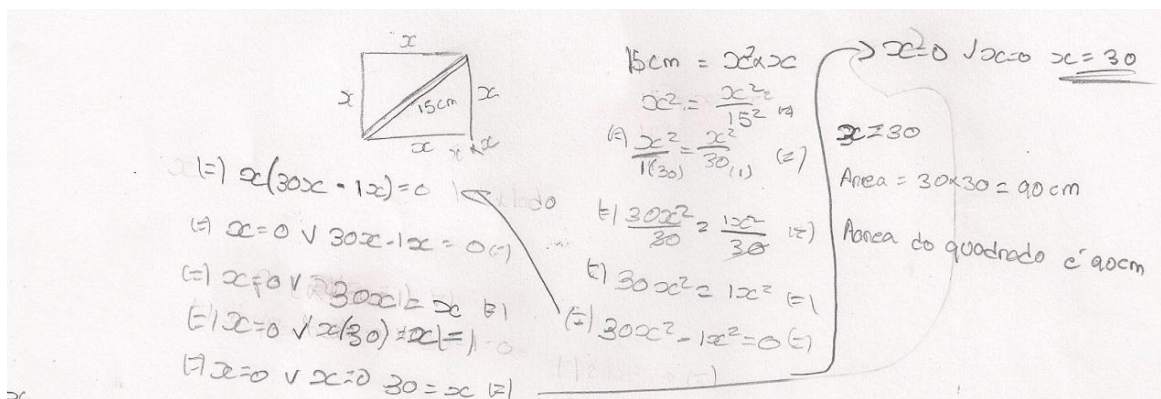 x
x 15cm x
x x
15cm = x²×x
x² = x²/15² (=)
(=) x²/1(30) = x²/30(1) (=)
(=) 30x²/30 = 1x²/30 (=)
(=) 30x² = 1x² (=)
(=) 30x² - 1x² = 0 (=)
(=) x(30x - 1x) = 0
(=) x=0 ∨ 30x-1x = 0 (=)
(=) x=0 ∨ 30x = x (=)
(=) x=0 ∨ x(30) = x (=)
(=) x=0 ∨ x=0 30 = x (=)
x=0 ∨ x=0 x=30
x=30
Area = 30×30 = 90cm
A area do quadrado é 90cm